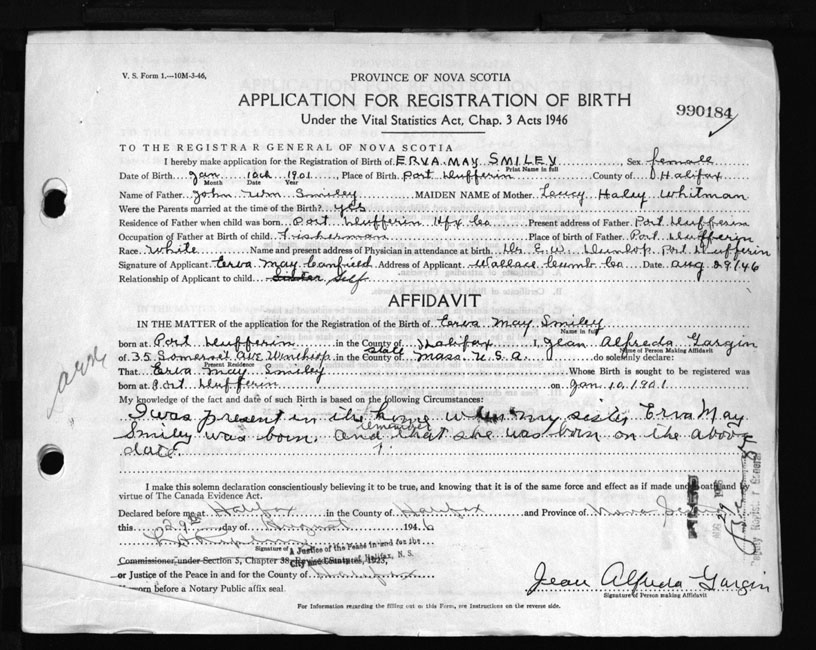 V. S. Form 1.—10M-3-46,
PROVINCE OF NOVA SCOTIA
APPLICATION FOR REGISTRATION OF BIRTH
Under the Vital Statistics Act, Chap. 3 Acts 1946
990184
TO THE REGISTRAR GENERAL OF NOVA SCOTIA
I hereby make application for the Registration of Birth of ERVA MAY SMILEY, Sex female
Print Name in full
Date of Birth Jan 10th 1901 Place of Birth Port Dufferin County of Halifax
Month Date Year
Name of Father John Wm Smiley MAIDEN NAME of Mother Haley Whitman
Were the Parents married at the time of the Birth? yes
Residence of Father when child was born Port Dufferin Hfx Co Present address of Father Port Dufferin
Occupation of Father at Birth of child Fisherman Place of birth of Father Port Dufferin
Race White Name and present address of Physician in attendance at birth Dr. E. W. Dunlop, Port Dufferin
Signature of Applicant Erva May Canfield Address of Applicant Wallace Cumb Co Date Aug 29/46
Relationship of Applicant to child Sister Self
AFFIDAVIT
IN THE MATTER of the application for the Registration of the Birth of Erva May Smiley
Name in full
born at Port Dufferin in the County of Halifax I, Jean Alfreda Gargin
Name of Person Making Affidavit
of 35 Somerset Ave Winthrop in the County of State Mass. U.S.A. do solemnly declare:
Present Residence
That Erva May Smiley Whose Birth is sought to be registered was
born at Port Dufferin on Jan 10, 1901
My knowledge of the fact and date of such Birth is based on the following Circumstances:
I was present in the home when my sister Erva May
Smiley was born, and remember that she was born on the above
date.
I make this solemn declaration conscientiously believing it to be true, and knowing that it is of the same force and effect as if made under oath and by
virtue of The Canada Evidence Act.
Declared before me at Halifax in the County of Halifax and Province of Nova Scotia
this 29th day of August 1946
Signature of
A Justice of the Peace in and for the
City and County of Halifax, N. S.
Commissioner, under Section 5, Chapter 38, Revised Statutes, 1923,
or Justice of the Peace in and for the County of
If sworn before a Notary Public affix seal.
Jean Alfreda Gargin
Signature of Person making Affidavit
For Information regarding the filling out of this Form, see Instructions on the reverse side.